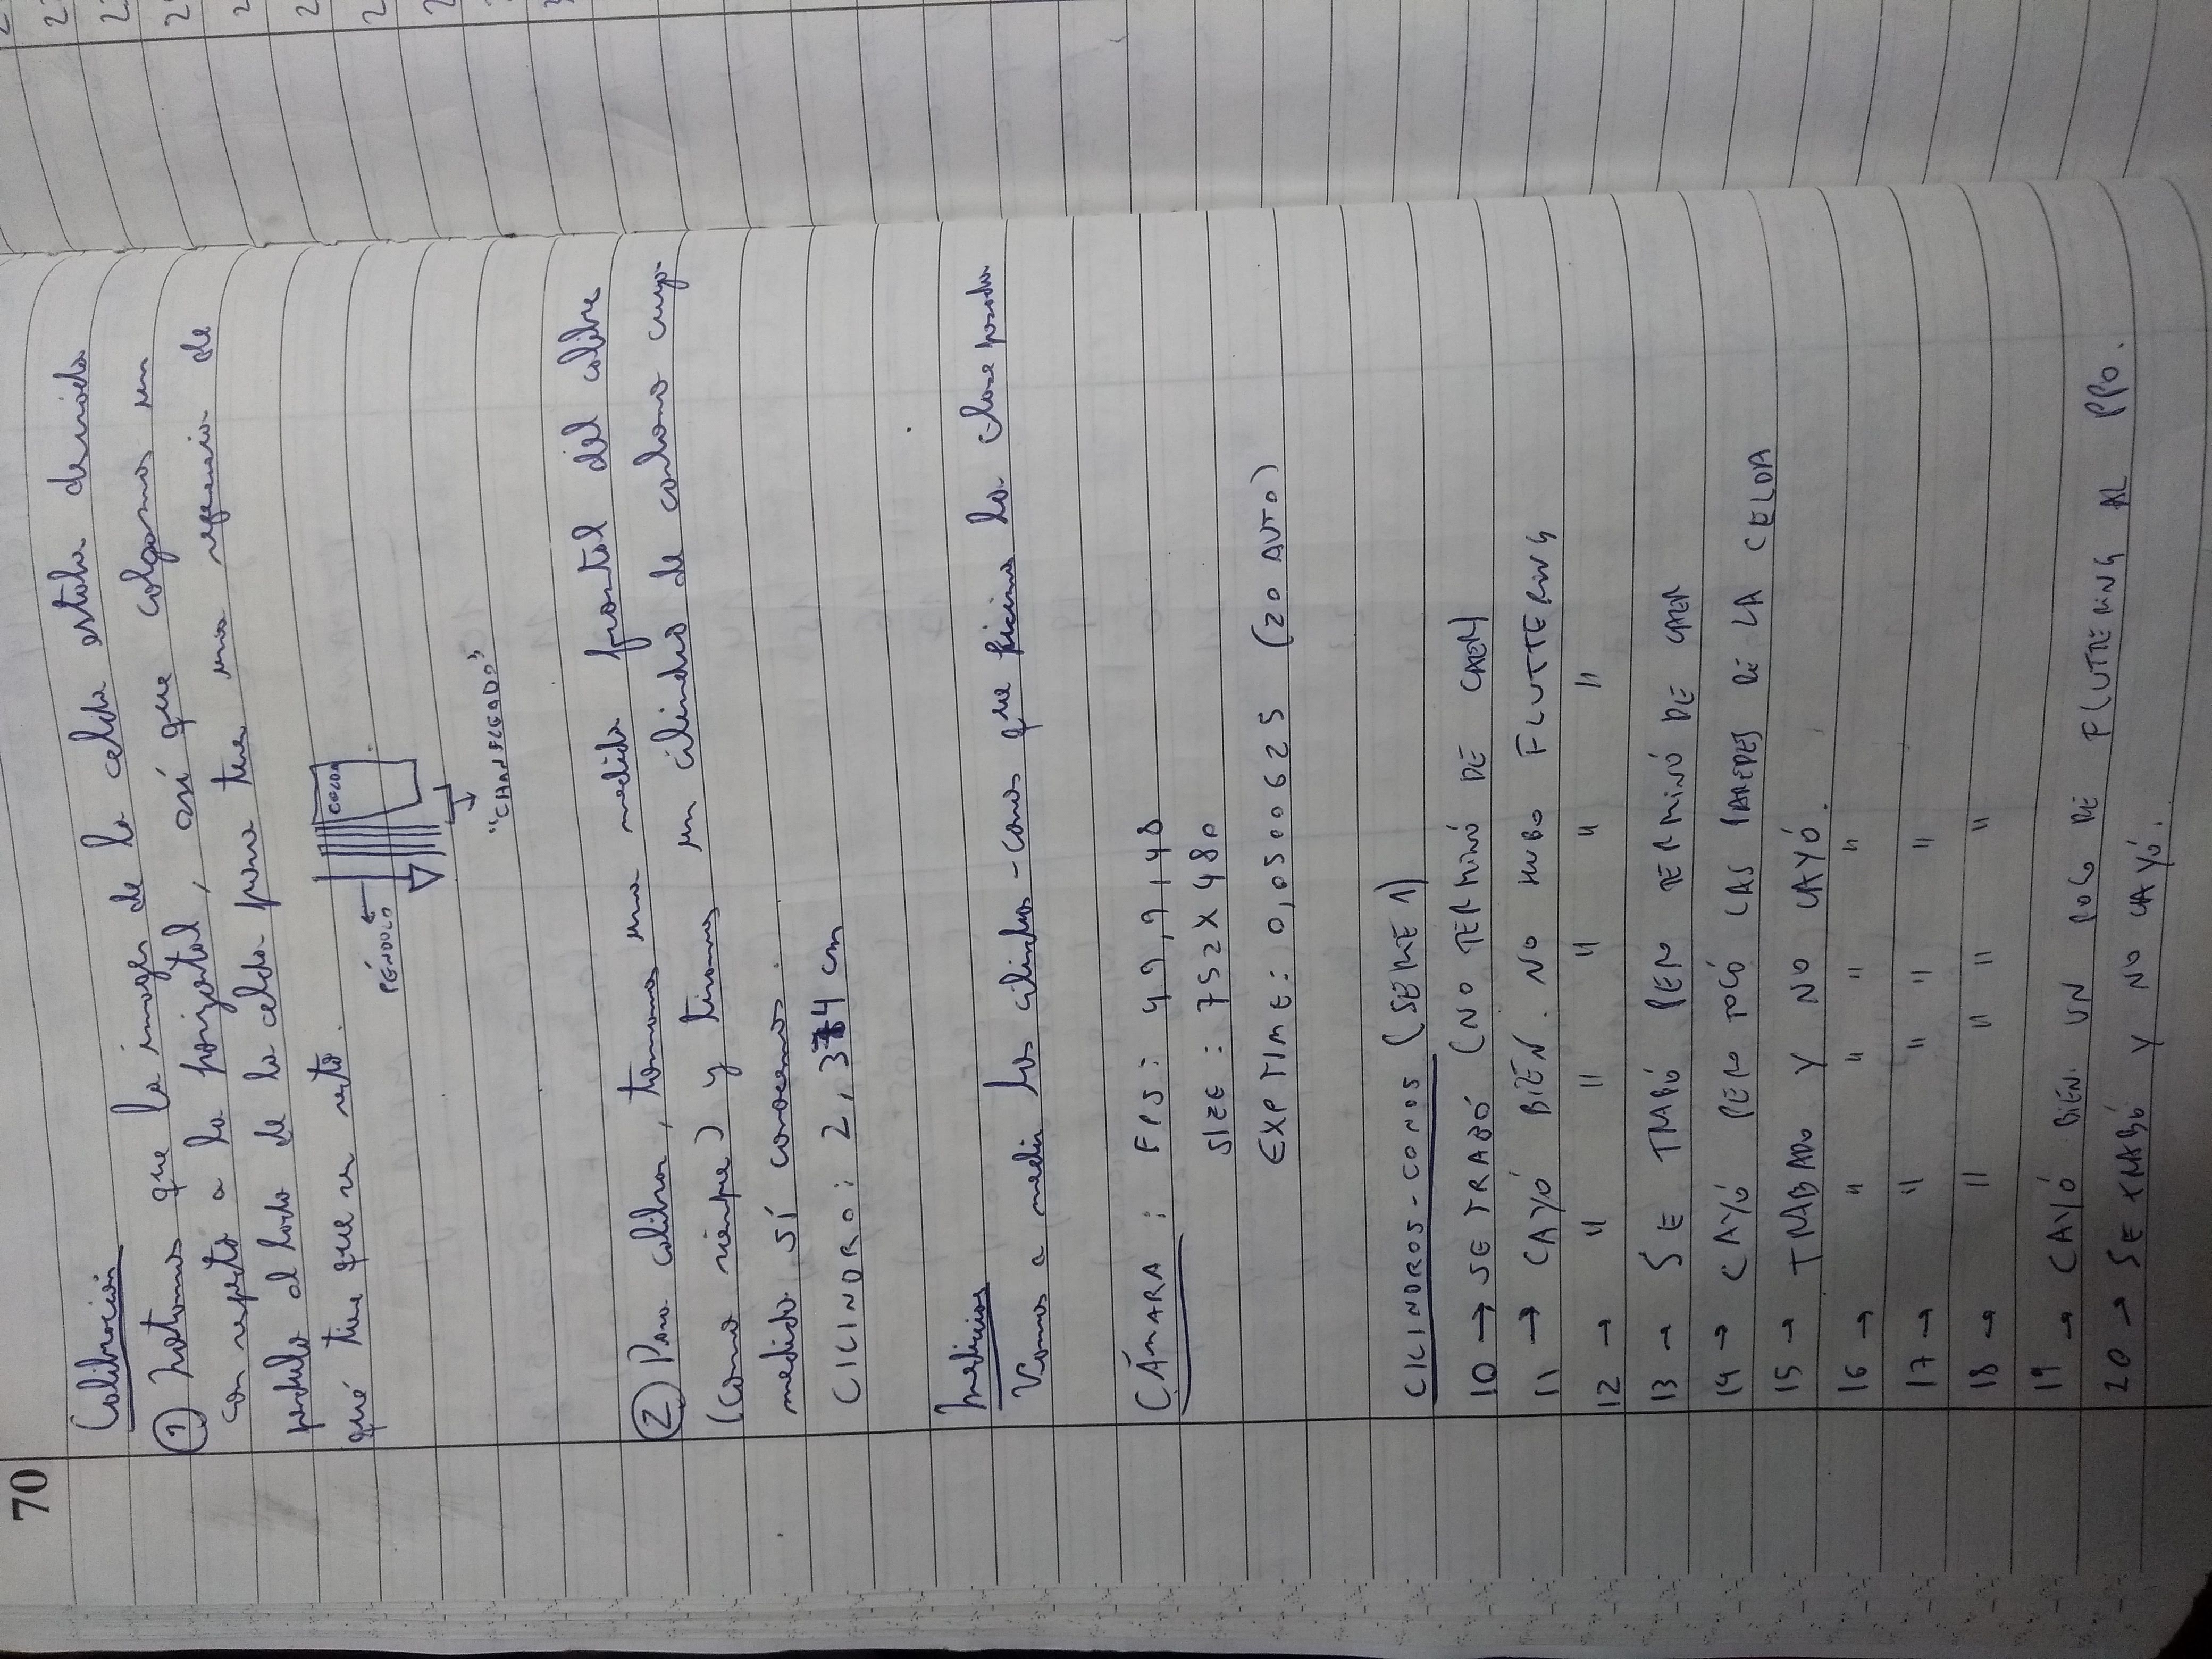 70
Calibración
① Notamos que la imagen de la celda estaba desviada
con respecto a la horizontal, así que colgamos un
péndulo al lado de la celda para tener una referencia de
qué tiene que ser recto.
CELDA
PÉNDULO
"CHANFLEADO"
② Para calibrar, tomamos una medida frontal del calibre
(como siempre) y tiramos un cilindro de carbono cuya
medida sí conocemos.
CILINDRO: 2,374 cm
Medicios
Vamos a medir los cilindros-conos que hicimos la clase pasada
CÁMARA: FPS: 49,9,48
SIZE: 752X480
EXP TIME: 0,0500625 (20 AUTO)
CILINDROS-CONOS (SERIE 1)
10 → SE TRABÓ (NO TERMINÓ DE CAER)
11 → CAYÓ BIEN. NO HUBO FLUTTERING
12 → " " " " "
13 → SE TRABÓ PERO TERMINÓ DE CAER
14 → CAYÓ PERO TOCÓ LAS PAREDES DE LA CELDA
15 → TRABADO Y NO CAYÓ.
16 → " " " "
17 → " " " "
18 → " " " "
19 → CAYÓ BIEN. UN POCO DE FLUTTERING AL PPO.
20 → SE TRABÓ Y NO CAYÓ.